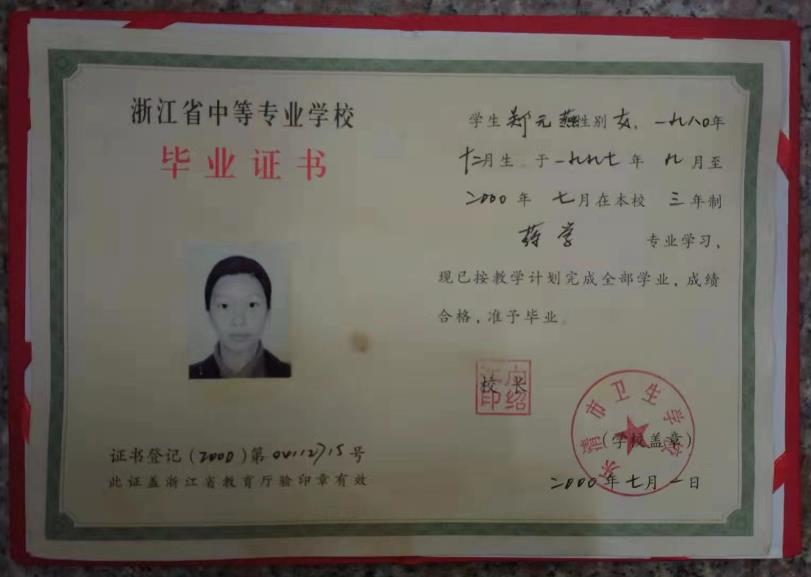 浙江省中等专业学校
毕业证书
学生 郑元燕 性别 女，一九八〇年
十二月生．于一九九七年 九月至
二000年 七月在本校 三年制
药学 专业学习，
现已按教学计划完成全部学业，成绩
合格，准予毕业。
校长
乐清市卫生学校
（学校盖章）
二000年七月一日
证书登记（2000）第04112715号
此证盖浙江省教育厅验印章有效